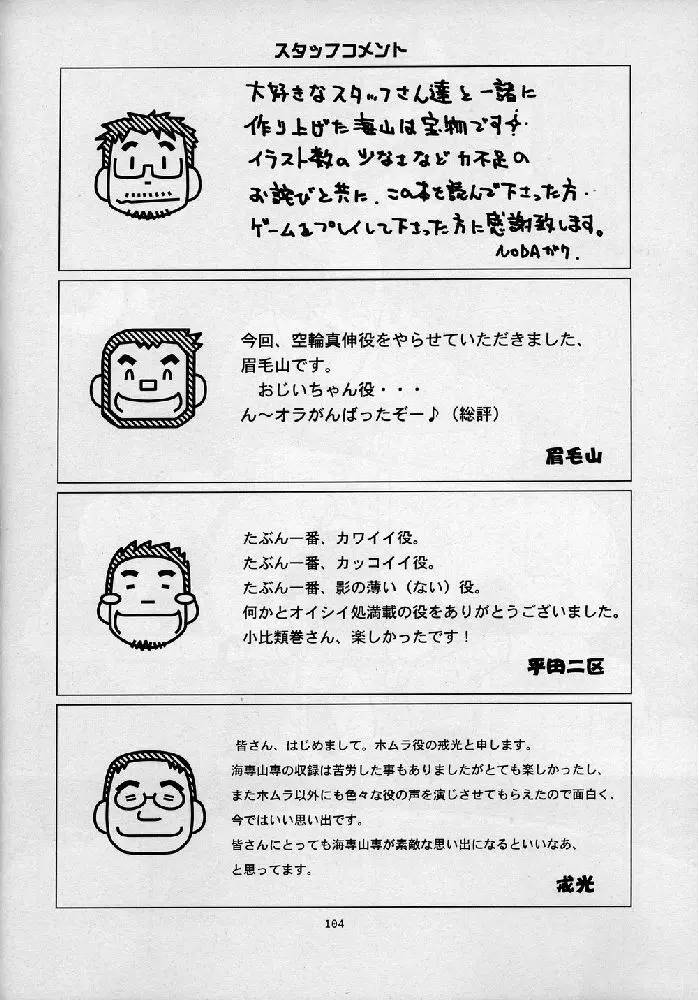 スタッフコメント
大好きなスタッフさん達と一諸に
作り上げた海山は宝物です!
イラスト数の少なさなど力不足の
お詫びと共に、この本を読んで下さった方・
ゲームをプレイして下さった方に感謝致します。
NODAガク.
今回、空輪真伸役をやらせていただきました、
眉毛山です。
おじいちゃん役・・・
ん〜オラがんばったぞー♪（総評）
眉毛山
たぶん一番、カワイイ役。
たぶん一番、カッコイイ役。
たぶん一番、影の薄い（ない）役。
何かとオイシイ処満載の役をありがとうございました。
小比類巻さん、楽しかったです！
平田二区
皆さん、はじめまして。ホムラ役の戒光と申します。
海専山専の収録は苦労した事もありましたがとても楽しかったし、
またホムラ以外にも色々な役の声を演じさせてもらえたので面白く、
今ではいい思い出です。
皆さんにとっても海専山専が素敵な思い出になるといいなあ、
と思ってます。
戒光
104